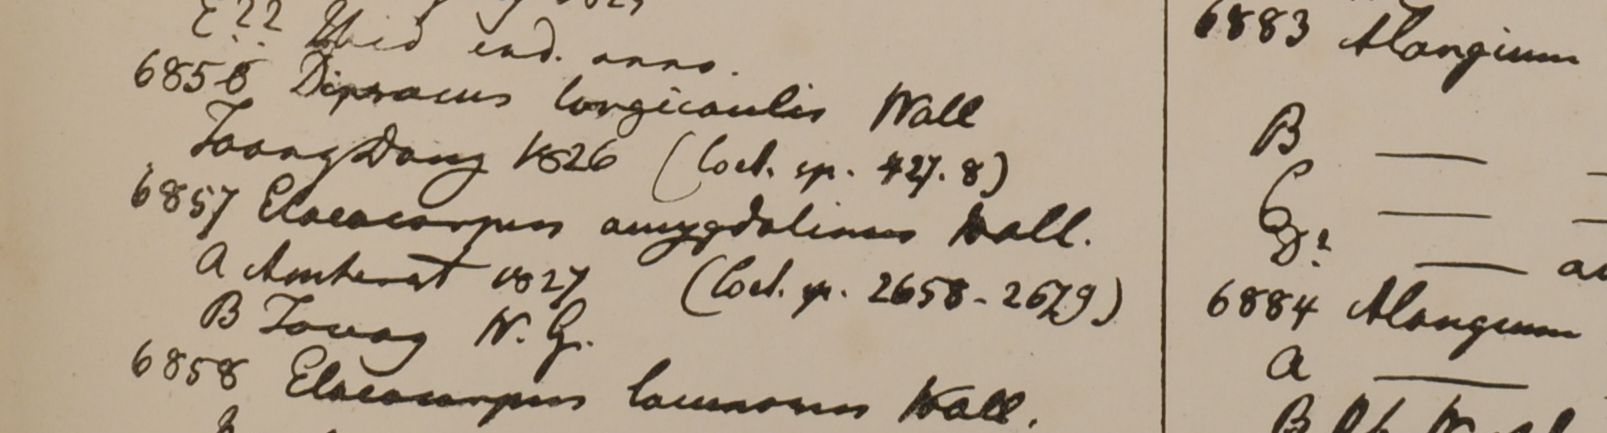 E?? Ibid eod. anno.
6856 Dipsacus longicaulis Wall
Toong Dong 1826 (Cat. sp. 427. 8)
6857 Elaeocarpus amygdalinus Wall.
A Amherst 1827 (Cat. sp. 2658-2679)
B Tavoy W. G.
6858 Elaeocarpus lacunosus Wall.
6883 Alangium
B —
C —
D? —
6884 Alangium
A —
B